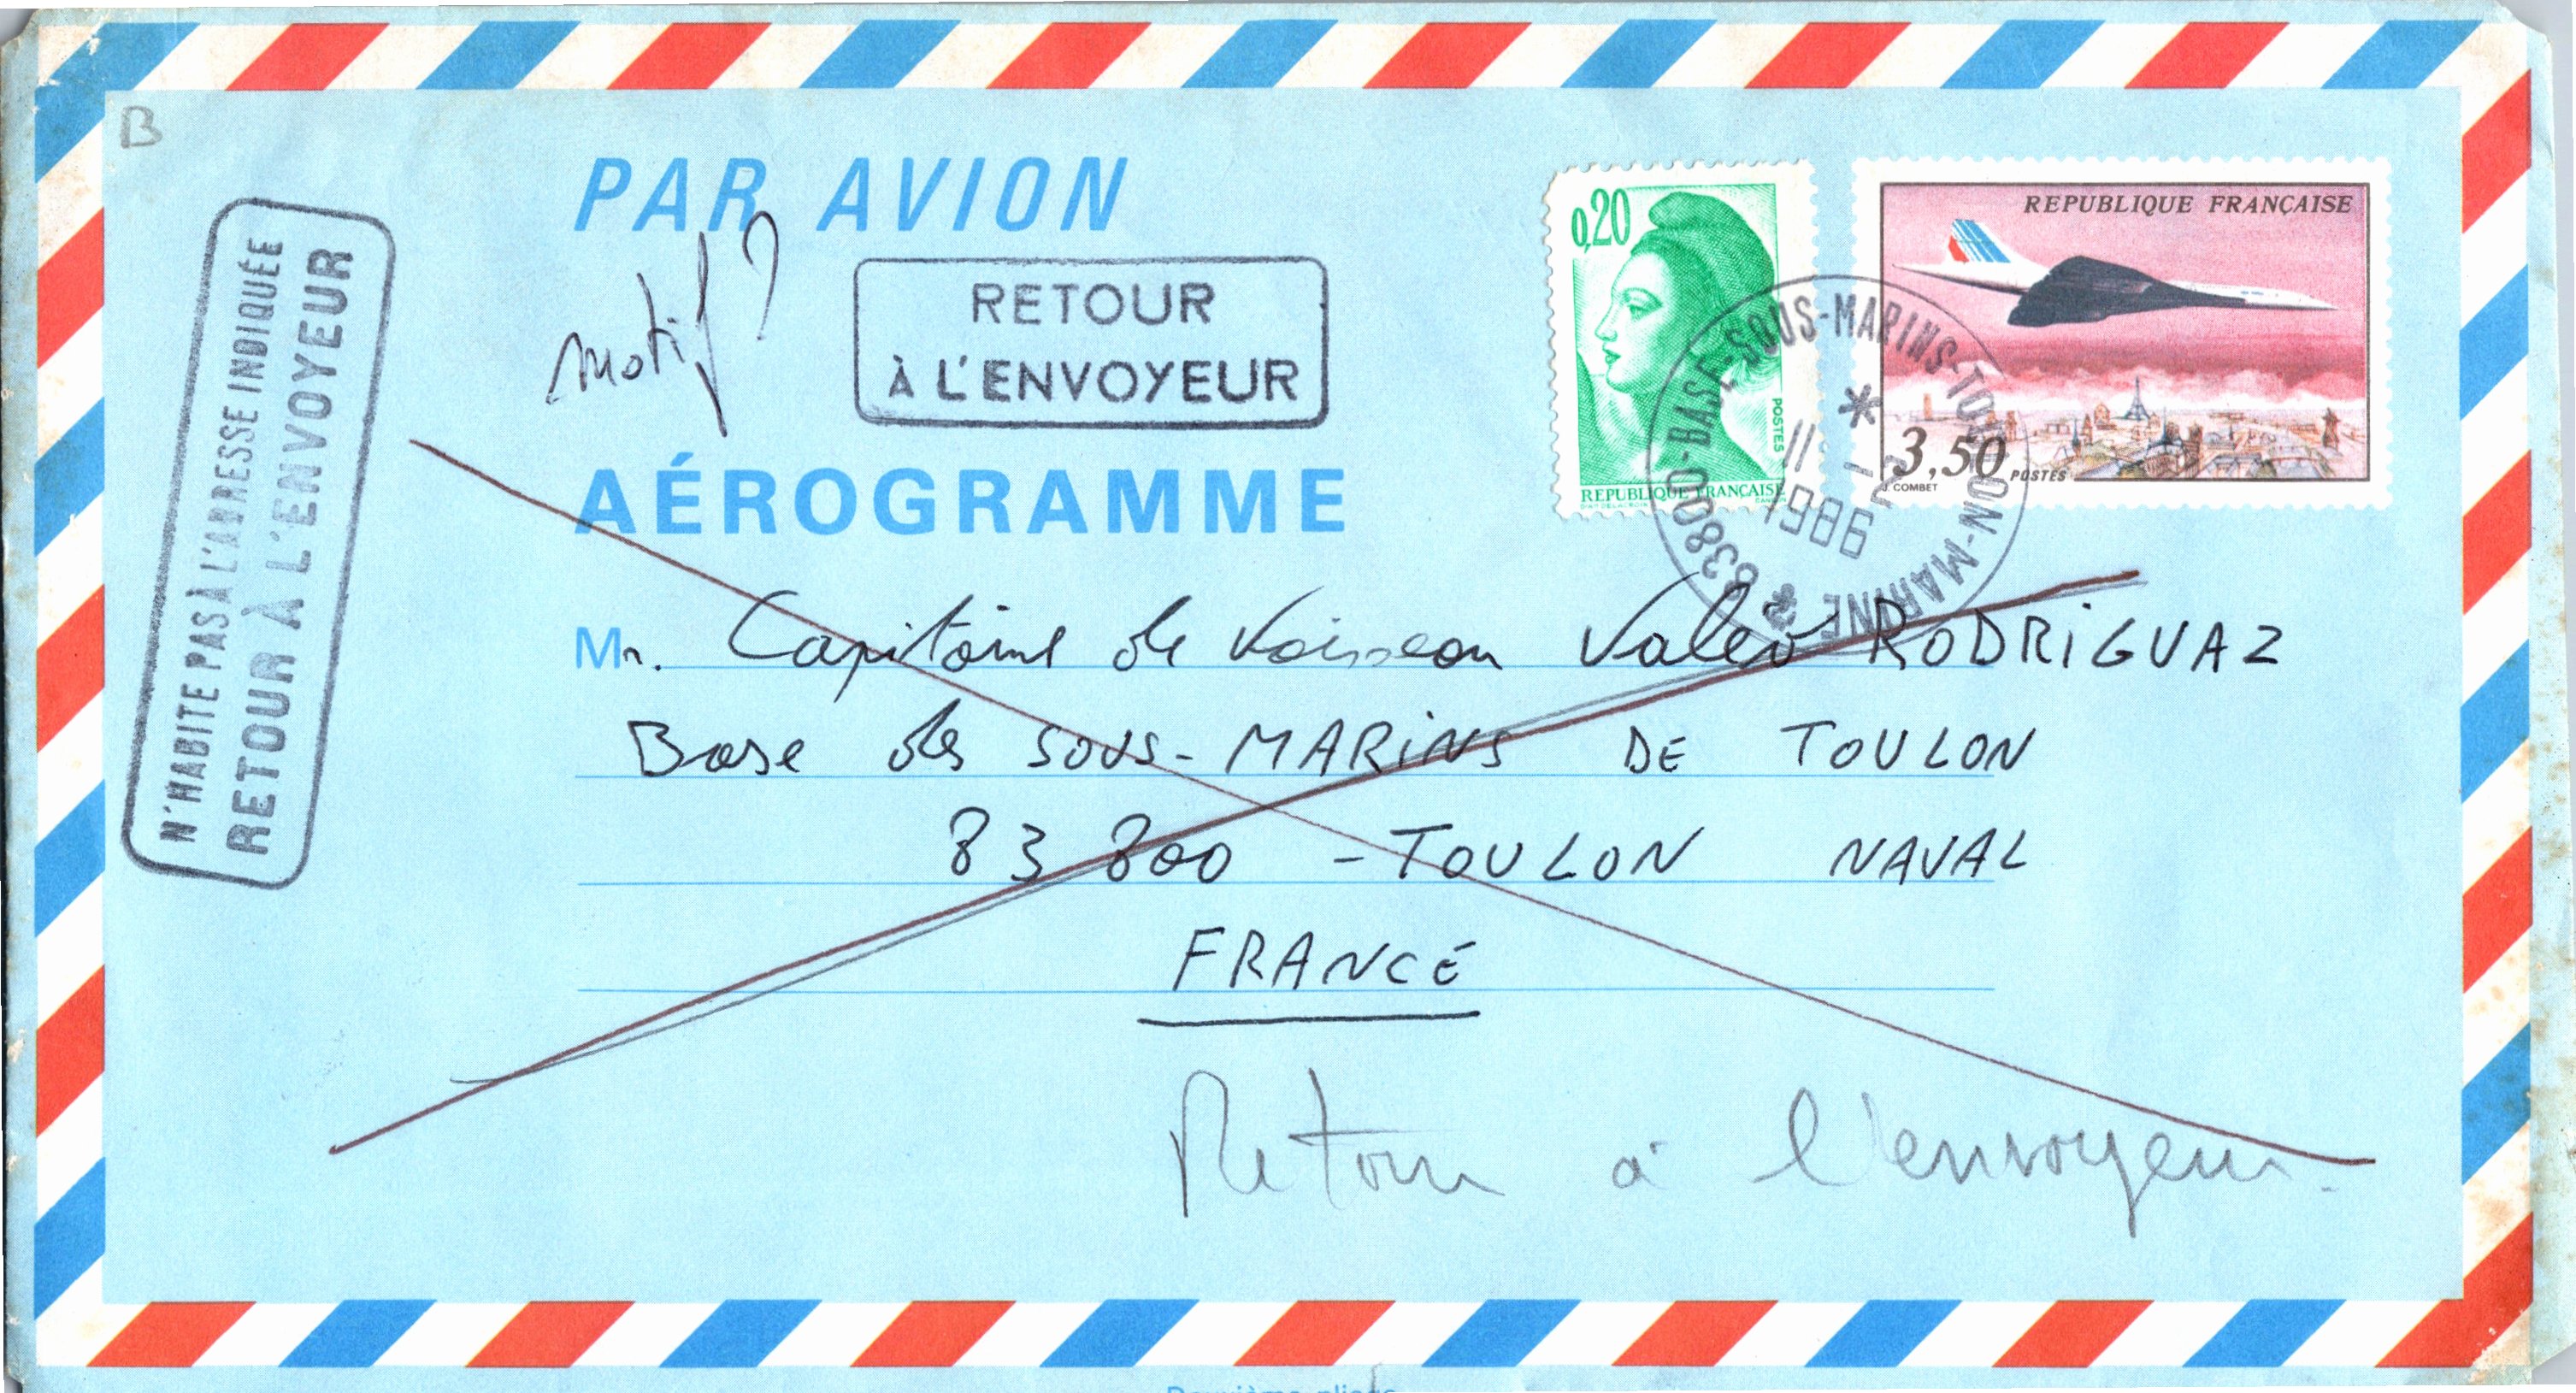 B
PAR AVION
motif ?
RETOUR
À L'ENVOYEUR
N'HABITE PAS À L'ADRESSE INDIQUÉE
RETOUR À L'ENVOYEUR
0,20
POSTES
REPUBLIQUE FRANÇAISE
REPUBLIQUE FRANÇAISE
3,50 POSTES
J. COMBET
83800-BASE-SOUS-MARINS-TOULON-MARINE
11 - 2
1986
AÉROGRAMME
Mr. Capitaine de Vaisseau Valeo RODRIGUAZ
Base des SOUS-MARINS DE TOULON
83 800 - TOULON NAVAL
FRANCE
Retour à l'envoyeur.